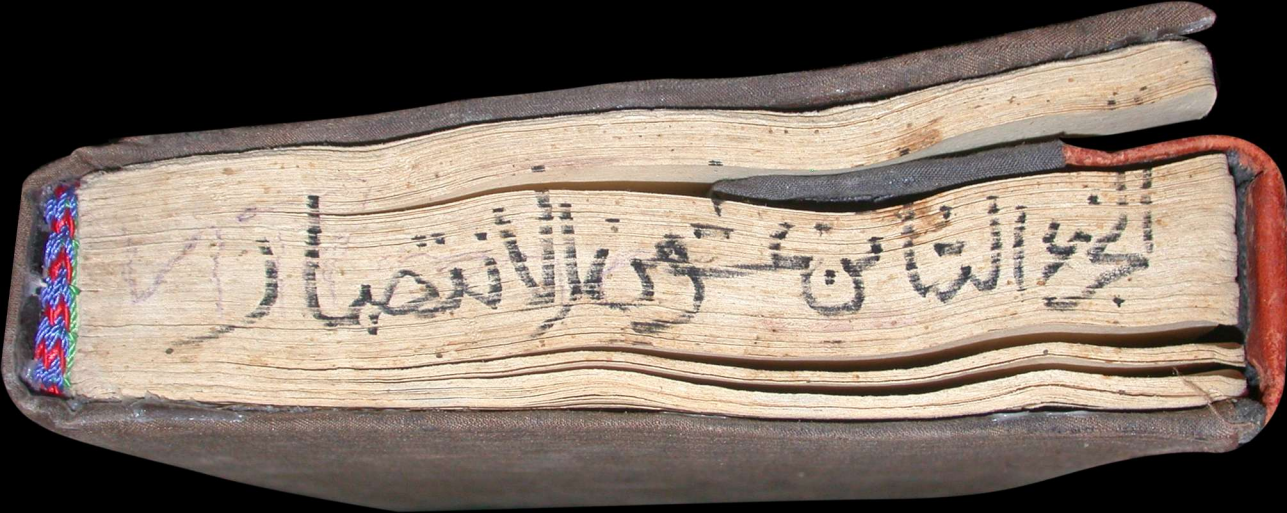 الجزء الثامن عشر من الانتصار